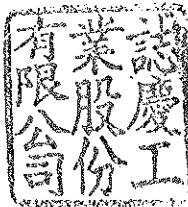 誌慶工
業股份
有限公司